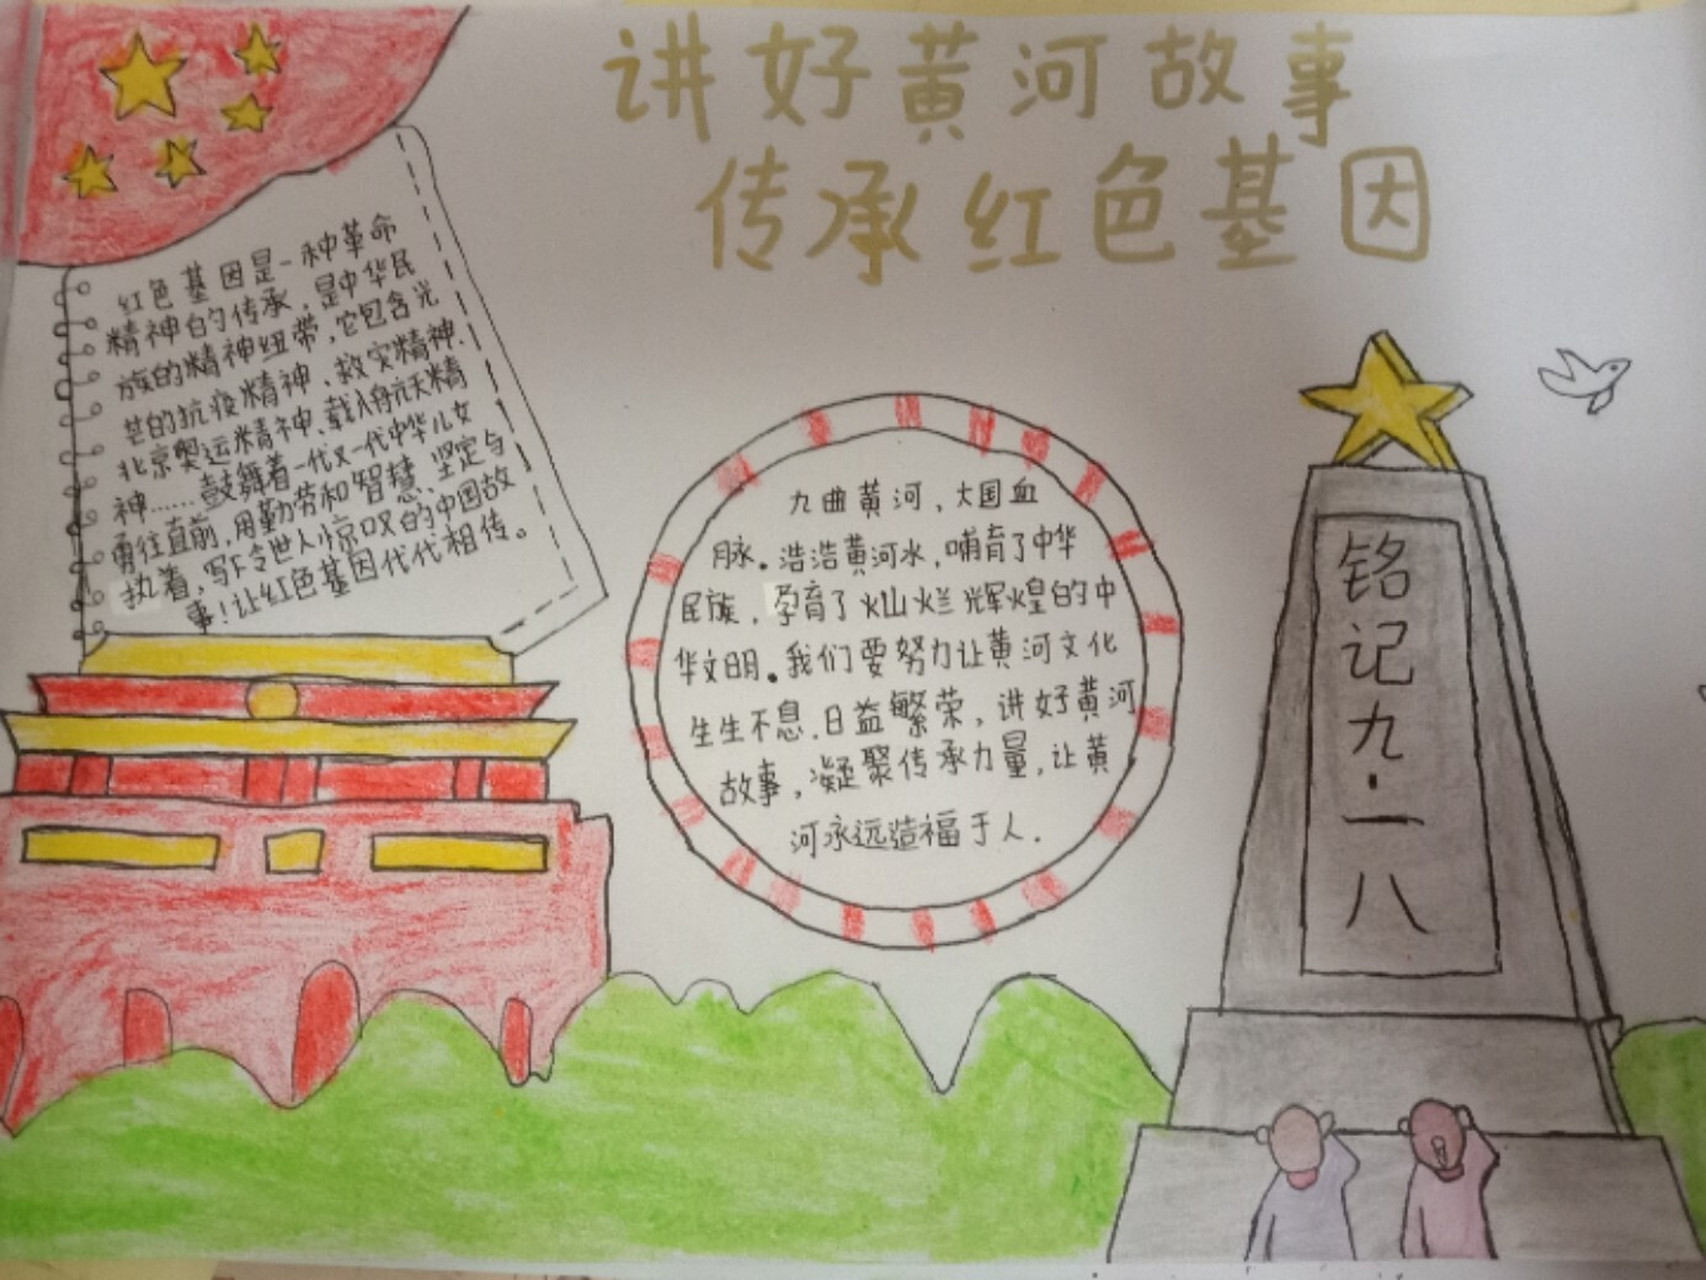 讲好黄河故事
传承红色基因
红色基因是一种革命
精神的传承，是中华民
族的精神纽带，它包含光
芒的抗疫精神、救灾精神、
北京奥运精神、载人航天精
神……鼓舞着一代又一代中华儿女
勇往直前，用勤劳和智慧、坚定与
执着，写下令世人惊叹的中国故
事！让红色基因代代相传。
九曲黄河，大国血
脉。浩浩黄河水，哺育了中华
民族，孕育了灿烂辉煌的中
华文明。我们要努力让黄河文化
生生不息，日益繁荣，讲好黄河
故事，凝聚传承力量，让黄
河永远造福于人.
铭记九·一八